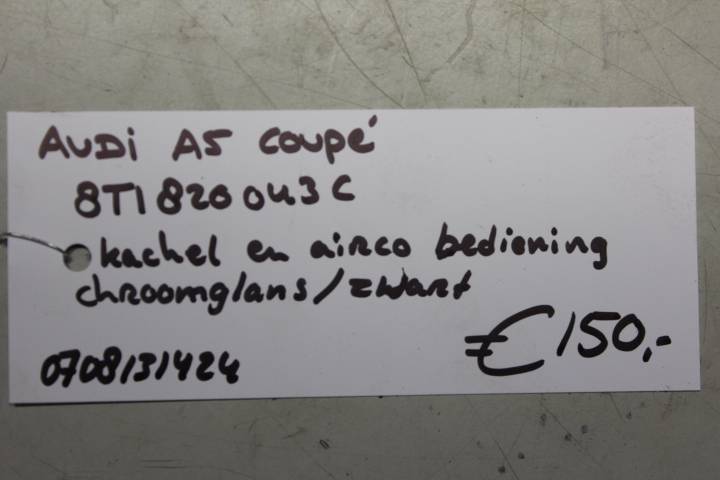 AUDi A5 coupé
8T1820043C
kachel en airco bediening
chroomglans/zwart
0708131424
€150,-